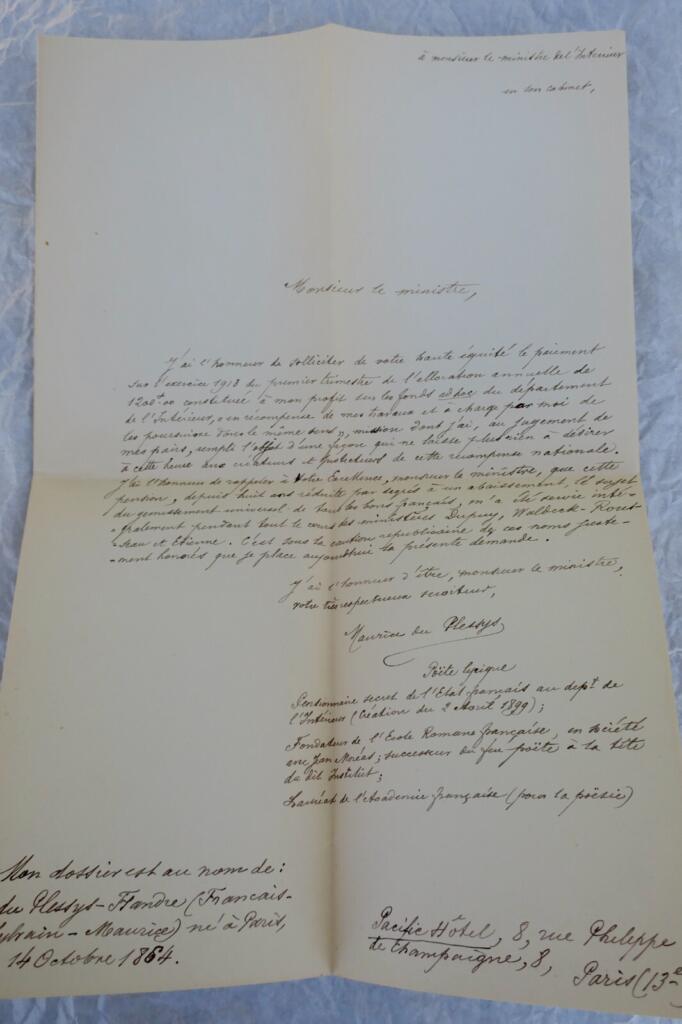 à monsieur le ministre de l'Intérieur
en son cabinet,
Monsieur le ministre,
J'ai l'honneur de solliciter de votre haute équité le paiement
sur l'exercice 1913 du premier trimestre de l'allocation annuelle de
1200f00 constituée à mon profit sur les fonds ad hoc du département
de l'Intérieur, « en récompense de mes travaux et à charge par moi de
les poursuivre dans le même sens », mission dont j'ai, au jugement de
mes pairs, rempli l'objet d'une façon qui ne laisse plus rien à désirer
à cette heure aux créateurs et protecteurs de cette récompense nationale.
J'ai l'honneur de rappeler à Votre Excellence, monsieur le ministre, que cette
pension, depuis huit ans réduite par degrés à un abaissement, il sujet
du gémissement universel de tous les bons français, m'a été servie inté-
-gralement pendant tout le cours des ministères Dupuy, Waldeck-Rous-
-seau et Etienne. C'est sous la caution républicaine de ces noms juste-
-ment honorés que je place aujourd'hui la présente demande.
J'ai l'honneur d'être, monsieur le ministre,
votre très respectueux serviteur,
Maurice du Plessys
Poëte lyrique
Pensionnaire secret de l'Etat français au dépt. de
l'Intérieur (Création du 2 Avril 1899);
Fondateur de l'Ecole Romane française, en société
avec Jean Moréas; successeur du feu poëte à la tête
du dit Institut;
Lauréat de l'Académie française (pour la poësie)
Mon dossier est au nom de:
du Plessys-Flandre (François-
Sylvain-Maurice) né à Paris,
14 Octobre 1864.
Pacific Hôtel, 8, rue Philippe
de Champaigne, 8,
Paris (13e